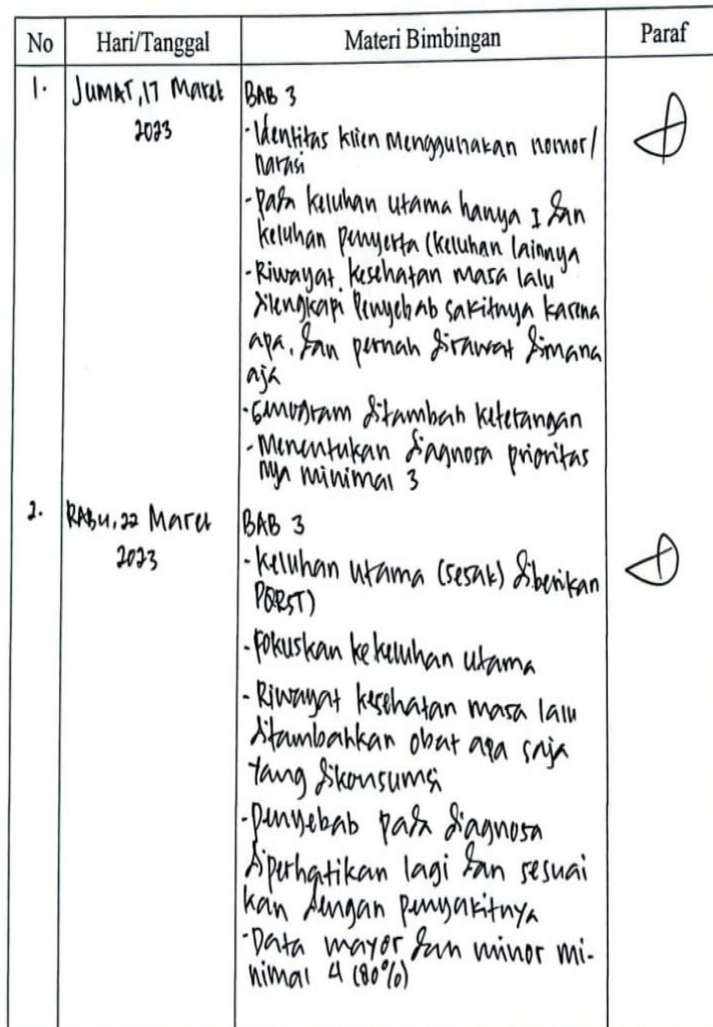 No Hari/Tanggal Materi Bimbingan Paraf
1. Jumat, 17 Maret 2023
BAB 3
- Identitas klien menggunakan nomor/
narasi
- pada keluhan utama hanya 1 dan
keluhan penyerta (keluhan lainnya
- Riwayat kesehatan masa lalu
dilengkapi penyebab sakitnya karena
apa, dan pernah dirawat dimana
aja
- Genogram ditambah keterangan
- Menentukan diagnosa prioritas
nya minimal 3
2. RABU, 22 Maret 2023
BAB 3
- keluhan utama (sesak) diberikan
PQRST)
- Fokuskan ke keluhan utama
- Riwayat kesehatan masa lalu
ditambahkan obat apa saja
yang dikonsumsi
- penyebab pada diagnosa
diperhatikan lagi dan sesuai
kan dengan penyakitnya
- Data mayor dan minor mi-
nimal 4 (80%)